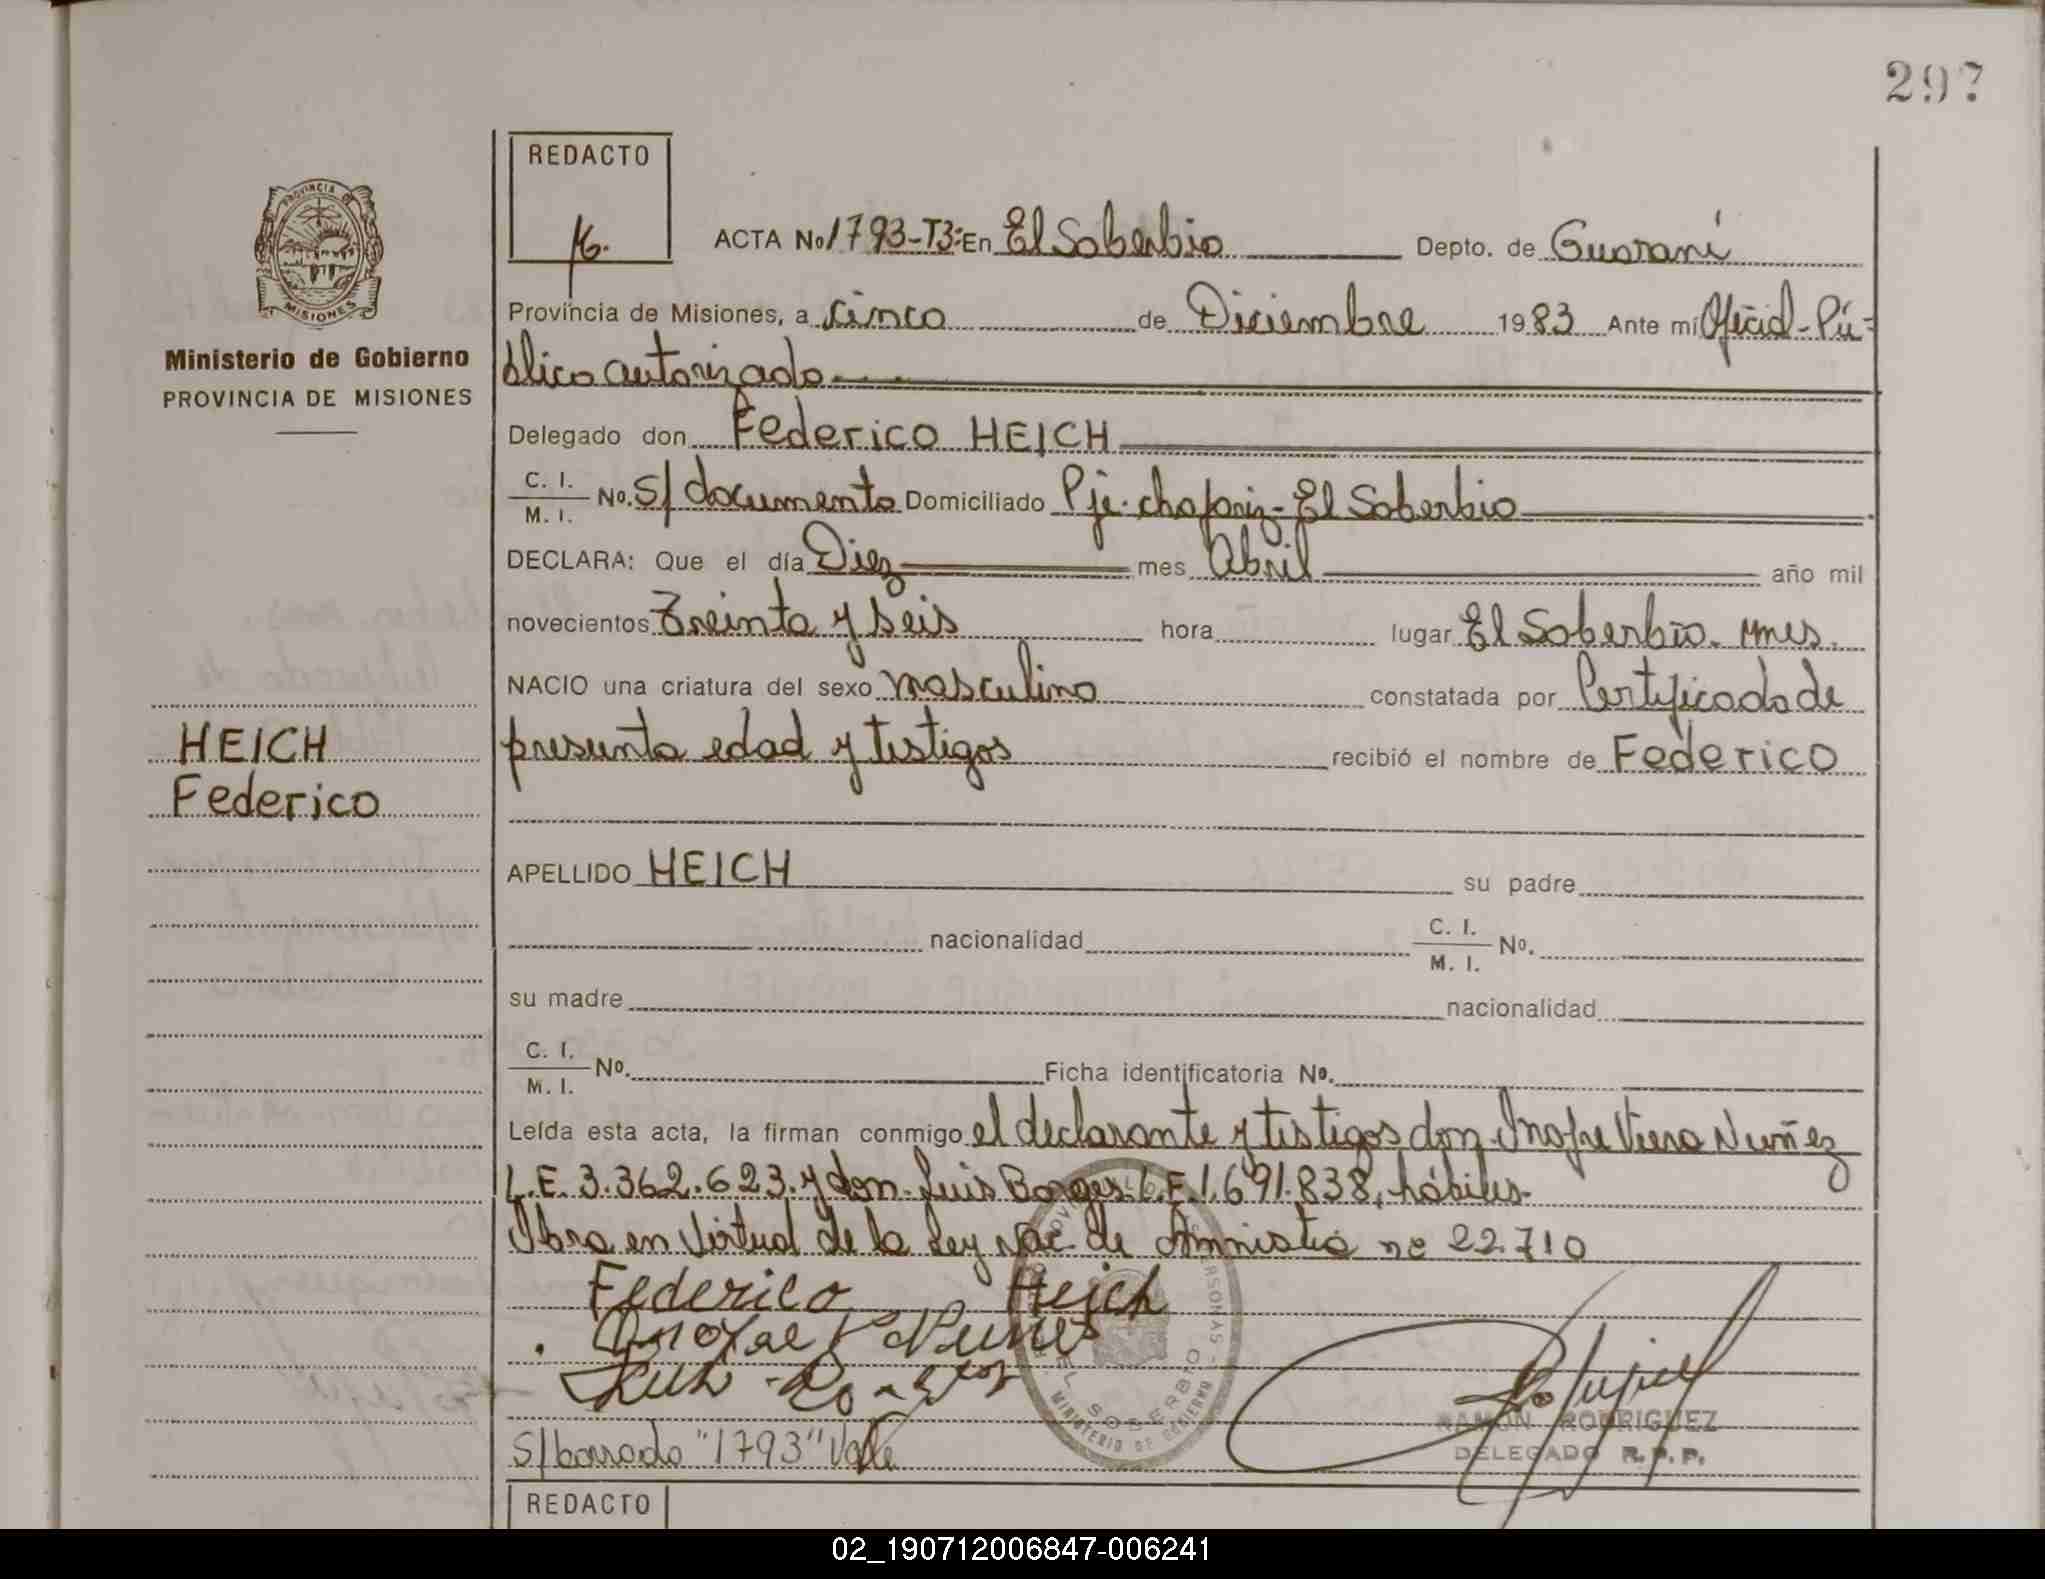 297
REDACTO
PROVINCIA
MISIONES
Ministerio de Gobierno
PROVINCIA DE MISIONES
HEICH
Federico
ACTA No 1793-T3: En El Soberbio Depto. de Guaraní
Provincia de Misiones, a cinco de Diciembre 1983 Ante mí Oficial-Pú-
blico autorizado
Delegado don Federico HEICH
C. I.
M. I. No. S/ documento Domiciliado Pje. chafariz-El Soberbio
DECLARA: Que el día Diez mes Abril año mil
novecientos Treinta y seis hora lugar El Soberbio. Mnes.
NACIO una criatura del sexo masculino constatada por Certificado de
presunta edad y testigos recibió el nombre de Federico
APELLIDO HEICH su padre
nacionalidad C. I.
M. I. No.
su madre nacionalidad
C. I.
M. I. No. Ficha identificatoria No.
Leída esta acta, la firman conmigo el declarante y testigos don Inofre Viera Nuñez
L.E. 3.362.623. y don Luis Borges L.E. 1.691.838, hábiles.
Obra en Virtud de la Ley Nac. de Amnistia nº 22.710
Federico Heich
Onofre V Nunes
S/borrado "1793" Vale
EL SOBERBIO
MINISTERIO DE GOBIERNO
RAMON RODRIGUEZ
DELEGADO R.P.P.
REDACTO
02_190712006847-006241